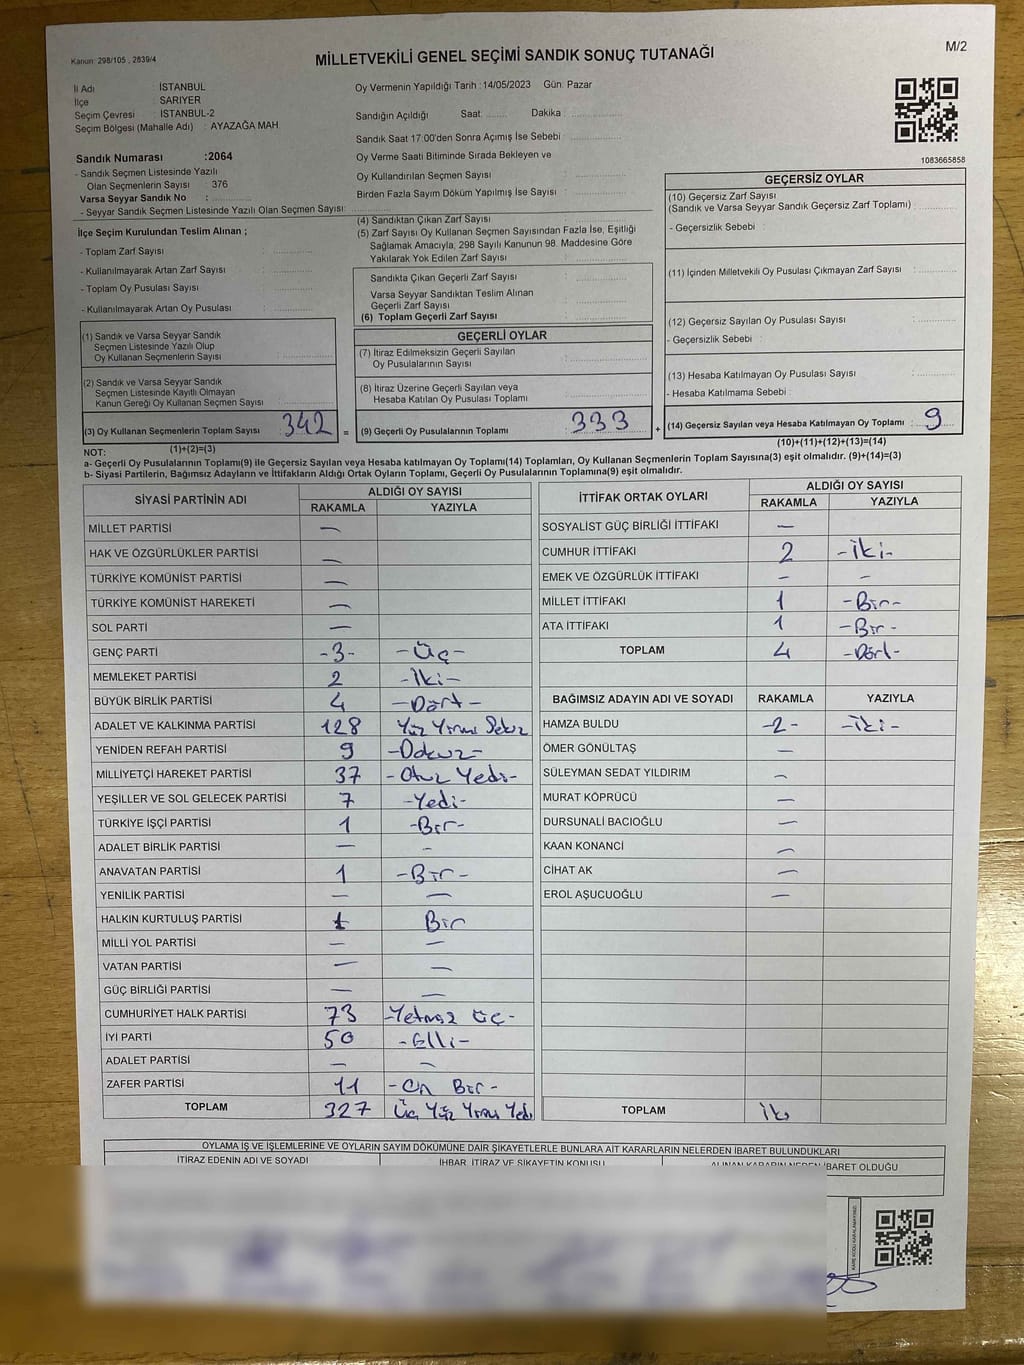 Kanun: 298/105 , 2839/4
MİLLETVEKİLİ GENEL SEÇİMİ SANDIK SONUÇ TUTANAĞI
M/2
İl Adı İSTANBUL
İlçe SARIYER
Seçim Çevresi : İSTANBUL-2
Seçim Bölgesi (Mahalle Adı) : AYAZAĞA MAH
Sandık Numarası :2064
- Sandık Seçmen Listesinde Yazılı
Olan Seçmenlerin Sayısı : 376
Varsa Seyyar Sandık No :
- Seyyar Sandık Seçmen Listesinde Yazılı Olan Seçmen Sayısı:
İlçe Seçim Kurulundan Teslim Alınan ;
- Toplam Zarf Sayısı :
- Kullanılmayarak Artan Zarf Sayısı :
- Toplam Oy Pusulası Sayısı :
- Kullanılmayarak Artan Oy Pusulası :
(1) Sandık ve Varsa Seyyar Sandık
Seçmen Listesinde Yazılı Olup
Oy Kullanan Seçmenlerin Sayısı :
(2) Sandık ve Varsa Seyyar Sandık
Seçmen Listesinde Kayıtlı Olmayan
Kanun Gereği Oy Kullanan Seçmen Sayısı :
(3) Oy Kullanan Seçmenlerin Toplam Sayısı 342 =
(1)+(2)=(3)
Oy Vermenin Yapıldığı Tarih :14/05/2023 Gün. Pazar
Sandığın Açıldığı Saat: Dakika :
Sandık Saat 17:00'den Sonra Açımış İse Sebebi :
Oy Verme Saati Bitiminde Sırada Bekleyen ve
Oy Kullandırılan Seçmen Sayısı :
Birden Fazla Sayım Döküm Yapılmış İse Sayısı :
(4) Sandıktan Çıkan Zarf Sayısı :
(5) Zarf Sayısı Oy Kullanan Seçmen Sayısından Fazla İse, Eşitliği
Sağlamak Amacıyla, 298 Sayılı Kanunun 98. Maddesine Göre
Yakılarak Yok Edilen Zarf Sayısı :
Sandıkta Çıkan Geçerli Zarf Sayısı :
Varsa Seyyar Sandıktan Teslim Alınan
Geçerli Zarf Sayısı :
(6) Toplam Geçerli Zarf Sayısı :
GEÇERLİ OYLAR
(7) İtiraz Edilmeksizin Geçerli Sayılan
Oy Pusulalarının Sayısı :
(8) İtiraz Üzerine Geçerli Sayılan veya
Hesaba Katılan Oy Pusulası Toplamı :
(9) Geçerli Oy Pusulalarının Toplamı : 333 +
1083665858
GEÇERSİZ OYLAR
(10) Geçersiz Zarf Sayısı
(Sandık ve Varsa Seyyar Sandık Geçersiz Zarf Toplamı) :
- Geçersizlik Sebebi :
(11) İçinden Milletvekili Oy Pusulası Çıkmayan Zarf Sayısı :
(12) Geçersiz Sayılan Oy Pusulası Sayısı :
- Geçersizlik Sebebi :
(13) Hesaba Katılmayan Oy Pusulası Sayısı :
- Hesaba Katılmama Sebebi :
(14) Geçersiz Sayılan veya Hesaba Katılmayan Oy Toplamı : 9
(10)+(11)+(12)+(13)=(14)
NOT:
a- Geçerli Oy Pusulalarının Toplamı(9) ile Geçersiz Sayılan veya Hesaba katılmayan Oy Toplamı(14) Toplamları, Oy Kullanan Seçmenlerin Toplam Sayısına(3) eşit olmalıdır. (9)+(14)=(3)
b- Siyasi Partilerin, Bağımsız Adayların ve İttifakların Aldığı Ortak Oyların Toplamı, Geçerli Oy Pusulalarının Toplamına(9) eşit olmalıdır.
SİYASİ PARTİNİN ADI ALDIĞI OY SAYISI
RAKAMLA YAZIYLA
MİLLET PARTİSİ —
HAK VE ÖZGÜRLÜKLER PARTİSİ —
TÜRKİYE KOMÜNİST PARTİSİ —
TÜRKİYE KOMÜNİST HAREKETİ —
SOL PARTİ —
GENÇ PARTİ -3- -Üç-
MEMLEKET PARTİSİ 2 -İki-
BÜYÜK BİRLİK PARTİSİ 4 -Dört-
ADALET VE KALKINMA PARTİSİ 128 Yüz Yirmi Sekiz
YENİDEN REFAH PARTİSİ 9 -Dokuz-
MİLLİYETÇİ HAREKET PARTİSİ 37 -Otuz Yedi-
YEŞİLLER VE SOL GELECEK PARTİSİ 7 -Yedi-
TÜRKİYE İŞÇİ PARTİSİ 1 -Bir-
ADALET BİRLİK PARTİSİ — -
ANAVATAN PARTİSİ 1 -Bir-
YENİLİK PARTİSİ — —
HALKIN KURTULUŞ PARTİSİ 1 Bir
MİLLİ YOL PARTİSİ — —
VATAN PARTİSİ — —
GÜÇ BİRLİĞİ PARTİSİ — —
CUMHURİYET HALK PARTİSİ 73 -Yetmiş Üç-
İYİ PARTİ 50 -Elli-
ADALET PARTİSİ — —
ZAFER PARTİSİ 11 -On Bir-
TOPLAM 327 Üç Yüz Yirmi Yedi
İTTİFAK ORTAK OYLARI ALDIĞI OY SAYISI
RAKAMLA YAZIYLA
SOSYALİST GÜÇ BİRLİĞİ İTTİFAKI —
CUMHUR İTTİFAKI 2 -İki-
EMEK VE ÖZGÜRLÜK İTTİFAKI - -
MİLLET İTTİFAKI 1 -Bir-
ATA İTTİFAKI 1 -Bir-
TOPLAM 4 -Dört-
BAĞIMSIZ ADAYIN ADI VE SOYADI RAKAMLA YAZIYLA
HAMZA BULDU -2- -İki-
ÖMER GÖNÜLTAŞ —
SÜLEYMAN SEDAT YILDIRIM —
MURAT KÖPRÜCÜ —
DURSUNALİ BACIOĞLU —
KAAN KONANCİ —
CİHAT AK —
EROL AŞUCUOĞLU —
TOPLAM İki
OYLAMA İŞ VE İŞLEMLERİNE VE OYLARIN SAYIM DÖKÜMÜNE DAİR ŞİKAYETLERLE BUNLARA AİT KARARLARIN NELERDEN İBARET BULUNDUKLARI
İTİRAZ EDENİN ADI VE SOYADI İHBAR, İTİRAZ VE ŞİKAYETİN KONUSU ALINAN KARARIN NEDEN İBARET OLDUĞU